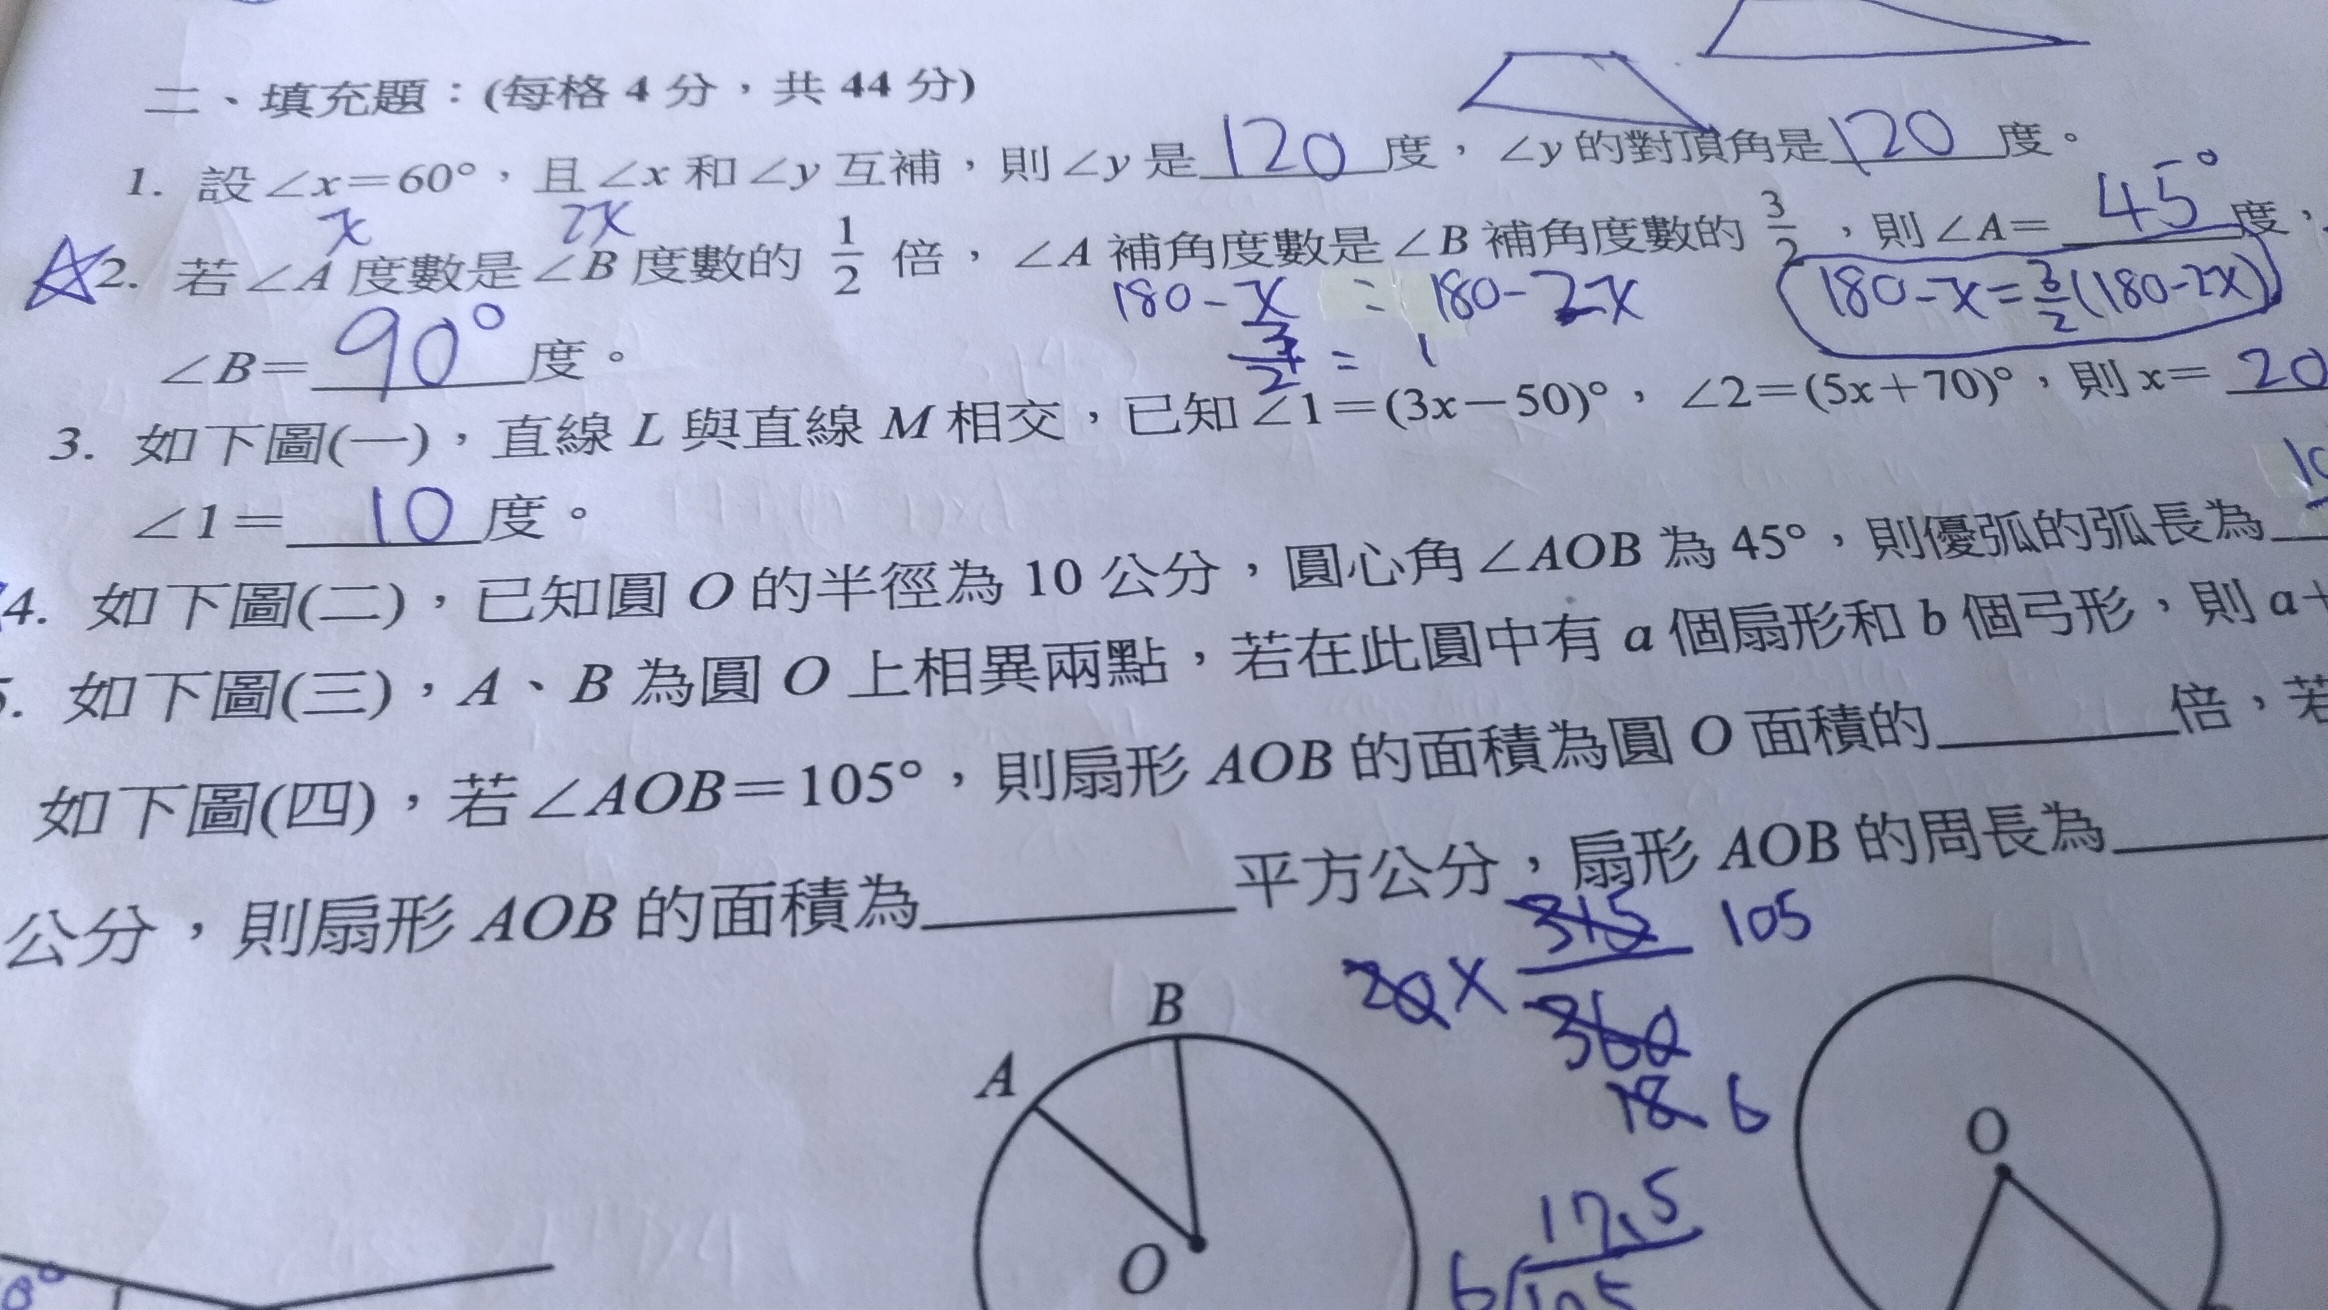 二、填充題：(每格 4 分，共 44 分)
1. 設∠x＝60°，且∠x 和∠y 互補，則∠y 是 120 度，∠y 的對頂角是 120 度。
x 2x
☆2. 若∠A 度數是∠B 度數的 1/2 倍，∠A 補角度數是∠B 補角度數的 3/2，則∠A＝ 45° 度，
180-x = 180-2x
180-x=3/2(180-2x)
∠B＝ 90° 度。
= 1
3. 如下圖(一)，直線 L 與直線 M 相交，已知∠1＝(3x－50)°，∠2＝(5x＋70)°，則 x＝ 20
∠1＝ 10 度。
4. 如下圖(二)，已知圓 O 的半徑為 10 公分，圓心角∠AOB 為 45°，則優弧的弧長為
. 如下圖(三)，A、B 為圓 O 上相異兩點，若在此圓中有 a 個扇形和 b 個弓形，則 a＋
如下圖(四)，若∠AOB＝105°，則扇形 AOB 的面積為圓 O 面積的 倍，若
公分，則扇形 AOB 的面積為 平方公分，扇形 AOB 的周長為
315 105
20 ×
360
18 6
B
A
O
O
17.5
6 105